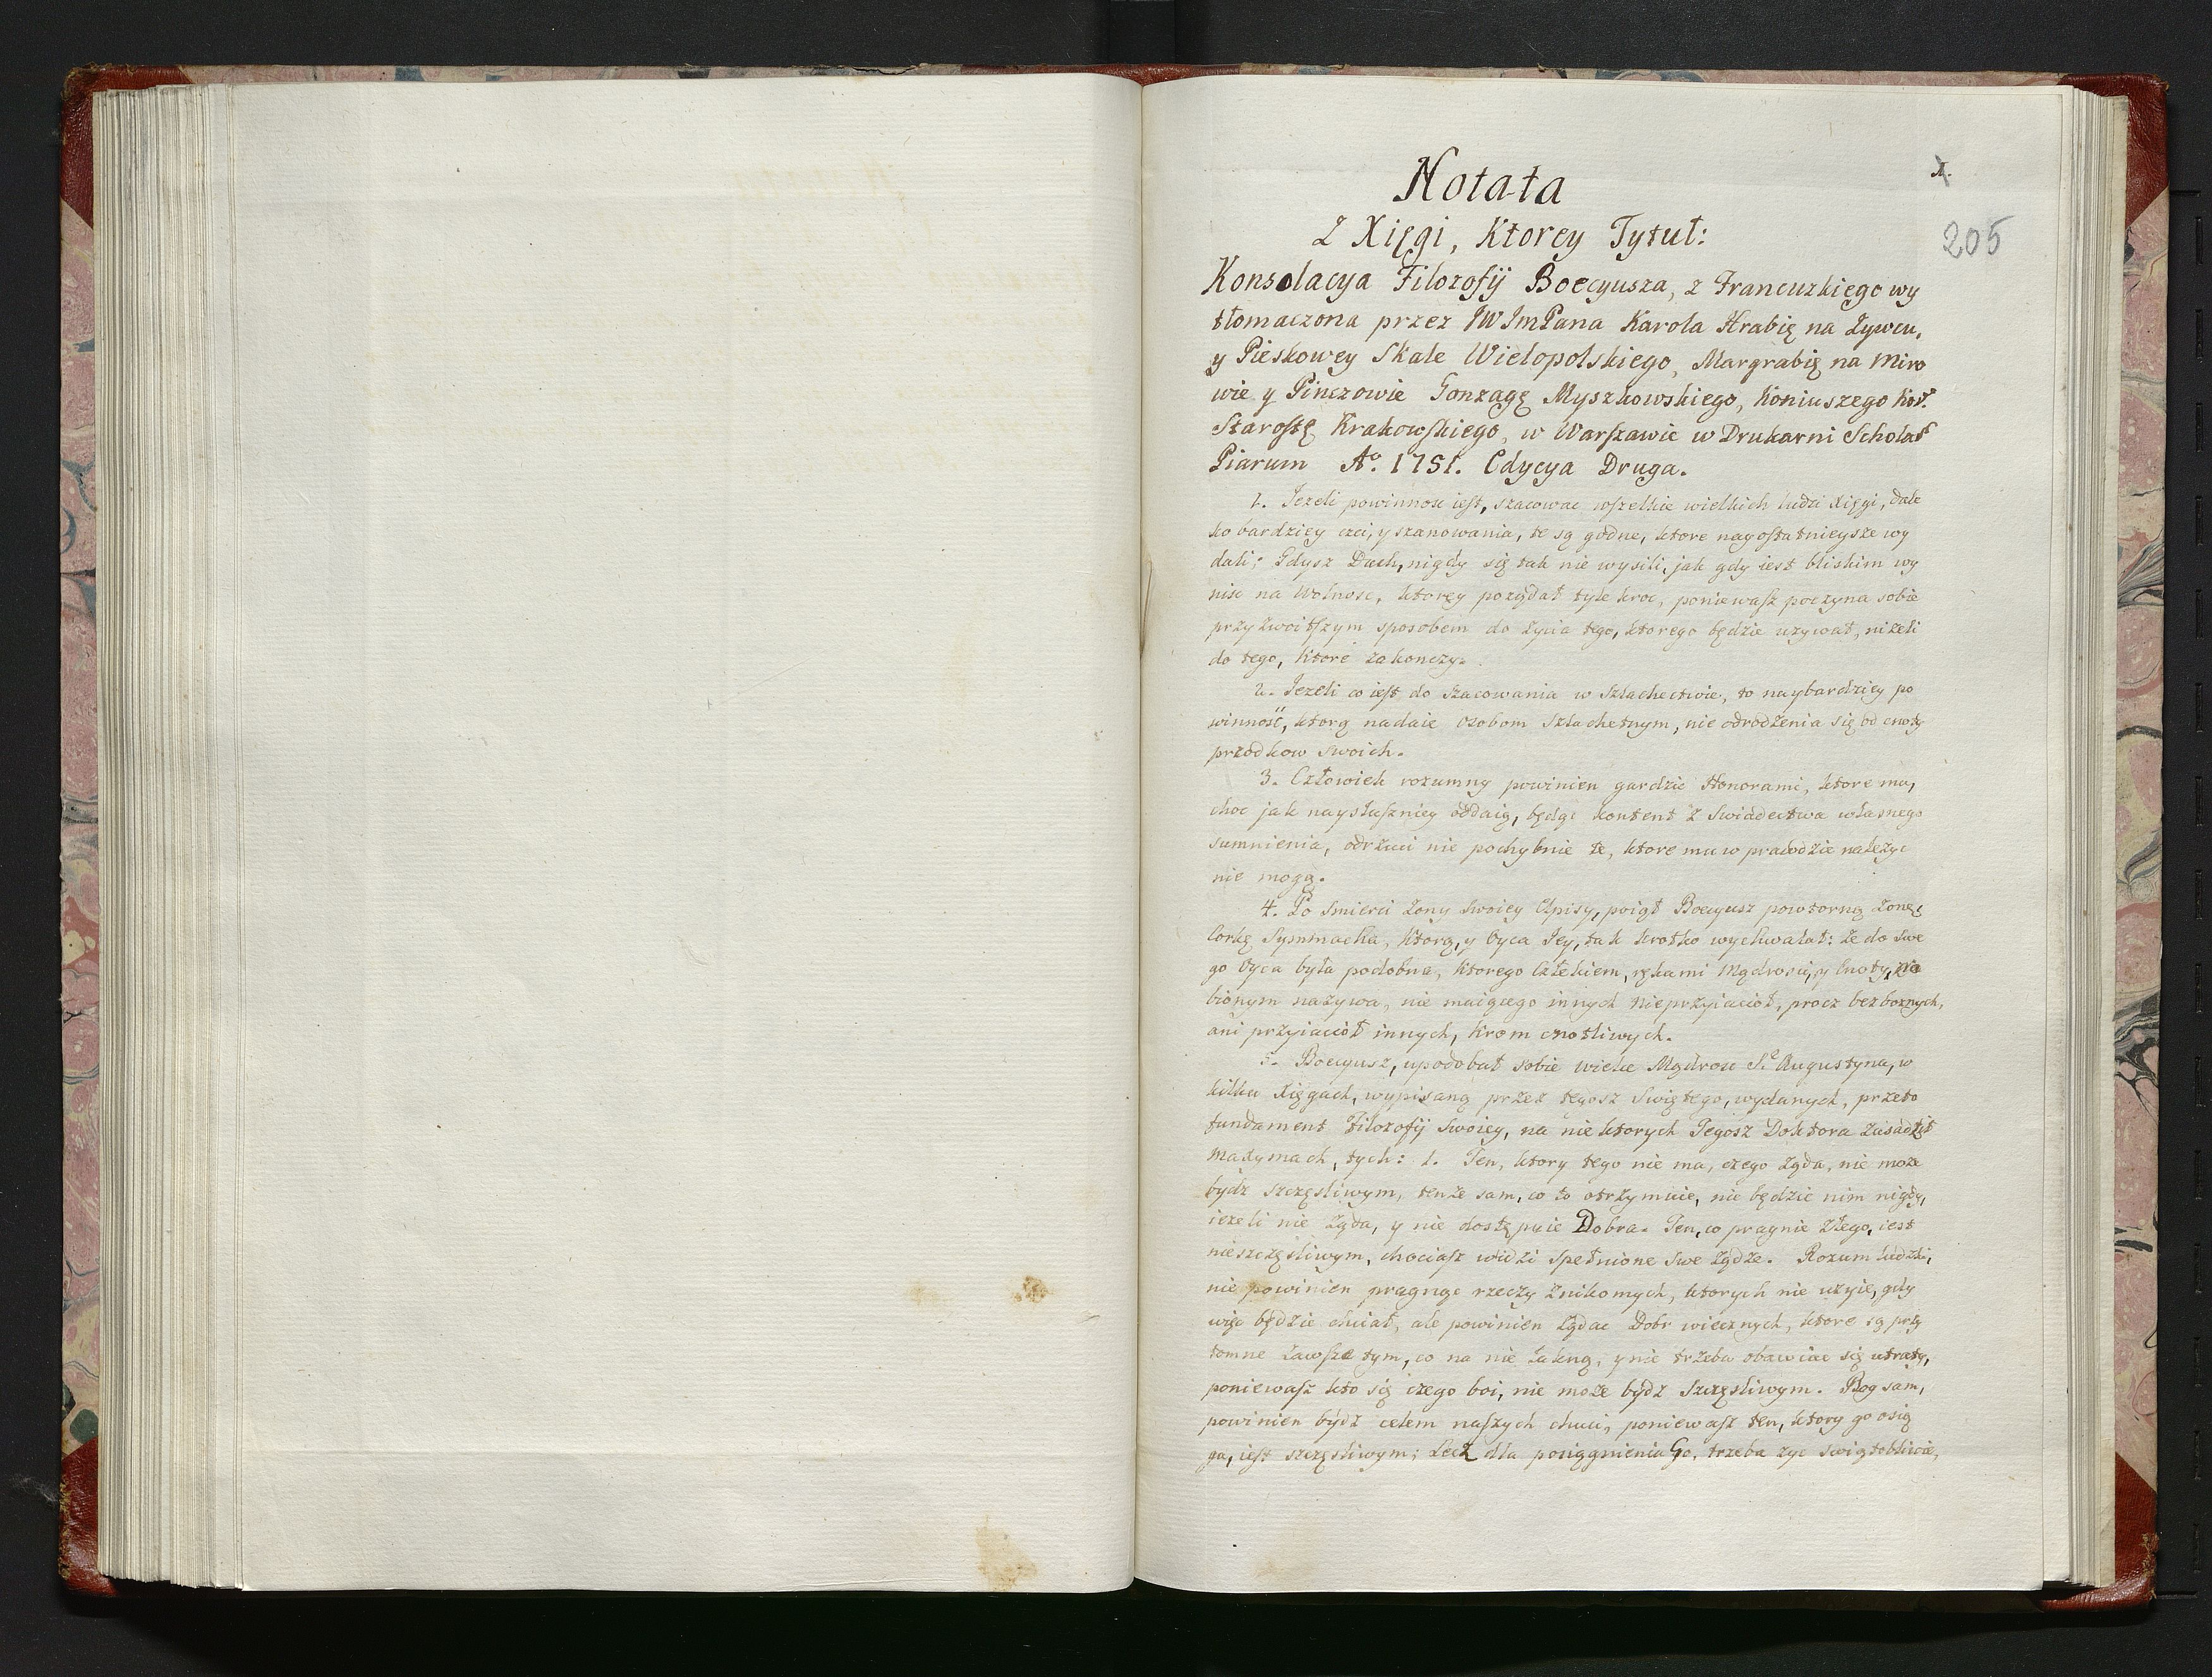 1.
205
Notata
Z Xięgi, Ktorey Tytuł:
Konsolacya Filozofij Boecyusza, z Francuzkiego wy
tłomaczona przez JW JmPana Karola Hrabię na Żywcu,
y Pieskowey Skale Wielopolskiego, Margrabię na Miro
wie y Pinczowie Gonzagę Myszkowskiego, Koniuszego Kor.
Starostę Krakowskiego, w Warszawie w Drukarni Scholar
Piarum Aº. 1751. Edycya Druga.
1. Jezeli powinnosc iest, szacowac wszelkie wielkich ludzi Xięgi, dale
ko bardziey czci, y szanowania, te są godne, ktore nayostatnieysze wy
dali; Gdysz Duch, nigdy się tak nie wysili, jak gdy iest bliskim wy
nisc na Wolnosc, ktorey pożądał tyle kroc, poniewasz poczyna sobie
przyzwoitszym sposobem do życia tego, ktorego będzie używał, niżeli
do tego, Ktore zakonczy.
2. Jezeli co iest do szacowania w Szlachectwie, to naybardziey po
winność, ktorą nadaie Osobom Szlachetnym, nie odrodzenia się od cnoty
przodkow swoich.
3. Człowiek rozumny powinien gardzic Honorami, ktore mu,
choc jak naysłuszniey oddaią, będąc kontent z Swiadectwa własnego
sumnienia, odrzuci nie pochybnie te, ktore mu w prawdzie należyc
nie mogą.
4. Po Smierci Żony Swoiey Elpisy, poiął Boecyusz powtorną Żonę,
Corkę Symmacha, Ktorą, y Oyca Jey, tak krotko wychwalał: że do Swe
go Oyca była podobna, Ktorego Człekiem, rękami Mądrosci, y Cnoty,
bionym nazywa, nie maiącego innych Nieprzyiaciół, procz bezbożnych,
ani przyiaciół innych, Krom cnotliwych.
5. Boecyusz, upodobał sobie wielce Mądrosc S. Augustyna, w
kilku Xięgach, wypisaną przez tegosz Swiętego, wydanych, przeto
fundament Filozofij Swoiey, na niektorych Tegosz Doktora zasadził
Maxymach, tych: 1. Ten, ktory tego nie ma, czego żąda, nie może
bydz szczęsliwym, tenże sam, co to otrzymuie, nie będzie nim nigdy,
ieżeli nie żąda, y nie dostępuie Dobra. Ten, co pragnie złego, iest
nieszczęsliwym, chociasz widzi spełnione Swe żądze. Rozum ludzki,
nie powinien pragnąc rzeczy znikomych, ktorych nie użyie, gdy
więc będzie chciał, ale powinien żądac Dobr wiecznych, ktore są przy
tomne zawsze tym, co na nie łakną, y nie trzeba obawiac się utraty,
poniewasz kto się czego boi, nie może bydz Szczęsliwym. Bog sam,
powinien bydz celem naszych chuci, poniewasz ten, ktory go osią
ga, iest szczęsliwym; Lecz dla posiągnienia Go, trzeba życ swiętobliwie,